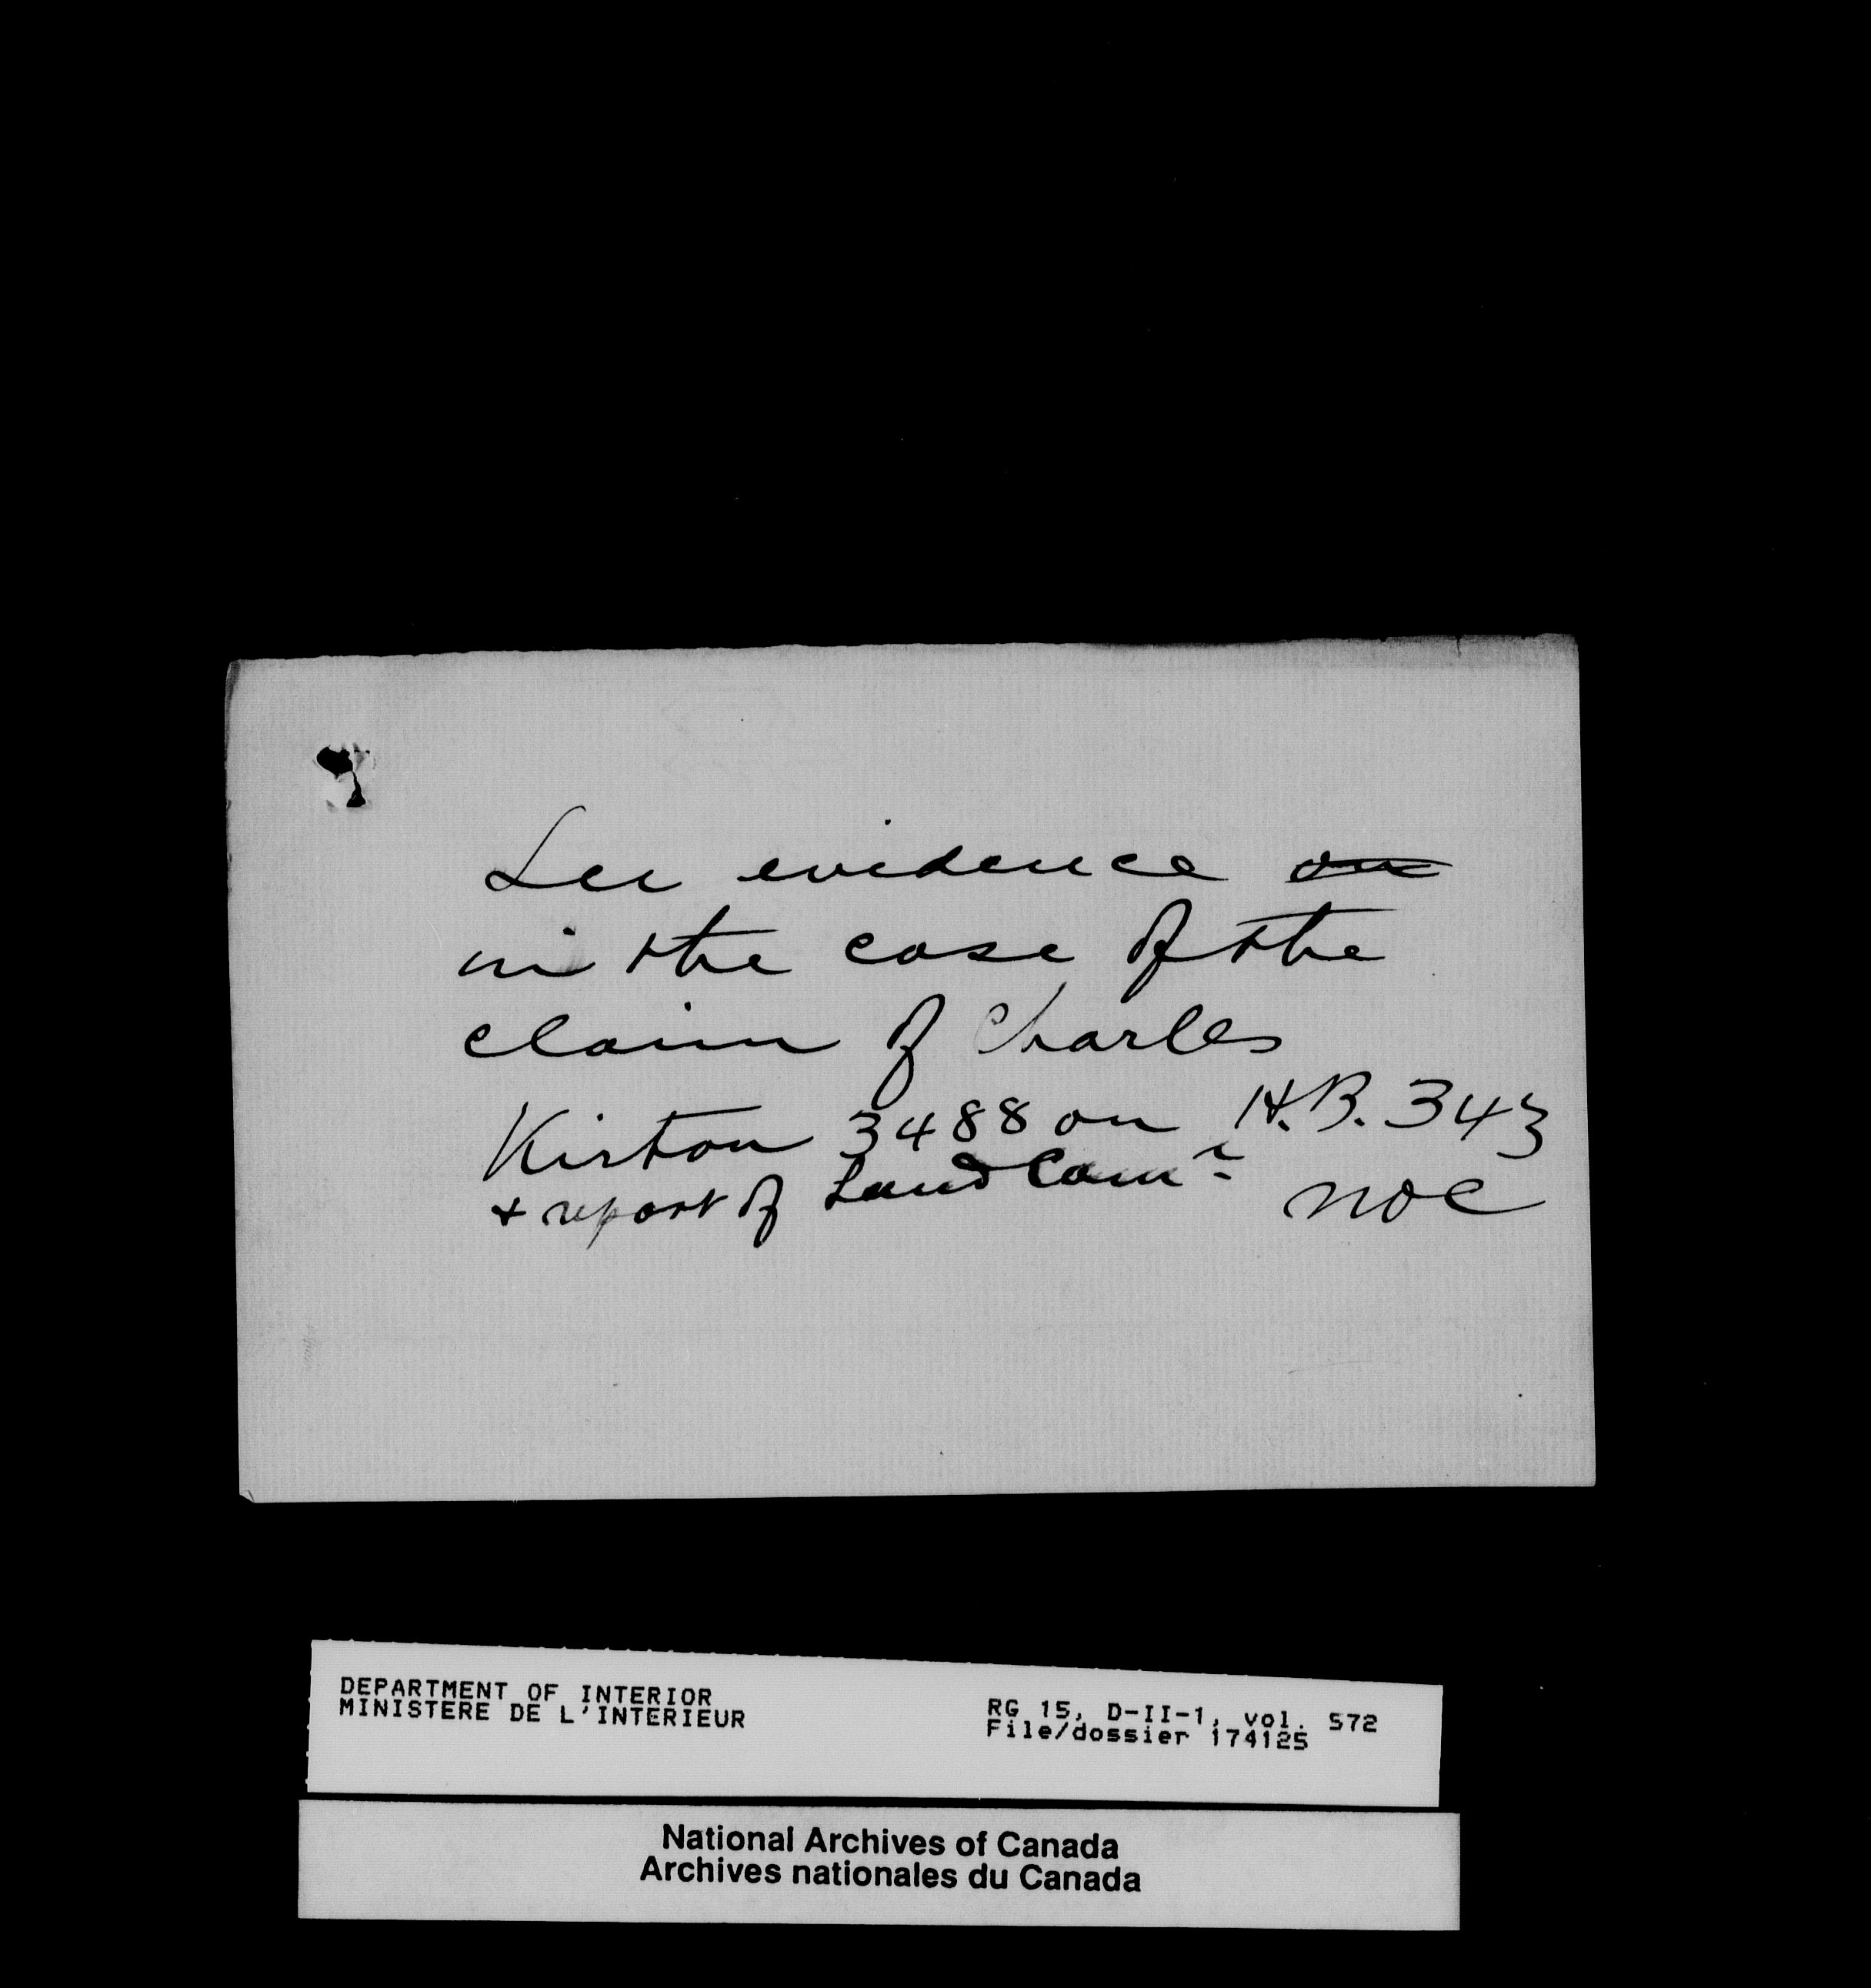 See evidence on
in the case of the
claim of Charles
Kirton 3488 on H.B. 343
& report of Land Comr NOC
DEPARTMENT OF INTERIOR
MINISTERE DE L'INTERIEUR
RG 15, D-II-1, vol. 572
File/dossier 174125
National Archives of Canada
Archives nationales du Canada